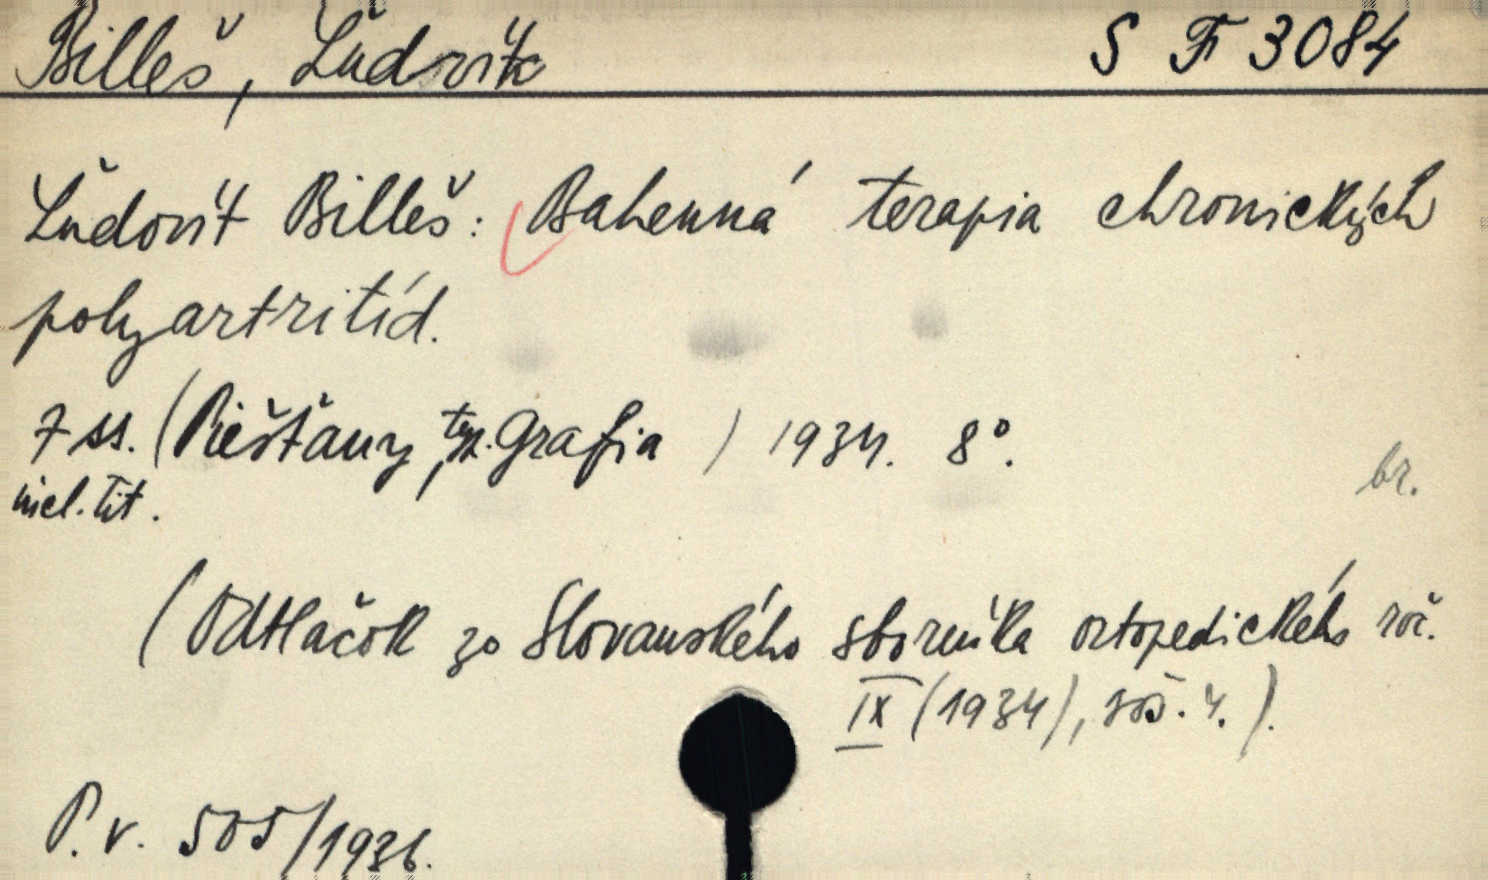 Billeš, Ľudovít S F 3084
Ľudovít Billeš: Bahenná terapia chronických
polyartritíd.
7 ss. (Piešťany, typ. Grafia) 1934. 8°.
incl. tit. br.
(Odtlačok zo Slovanského sborníka ortopedického roč.
IX (1934), soš. 4.).
P. v. 505/1936.